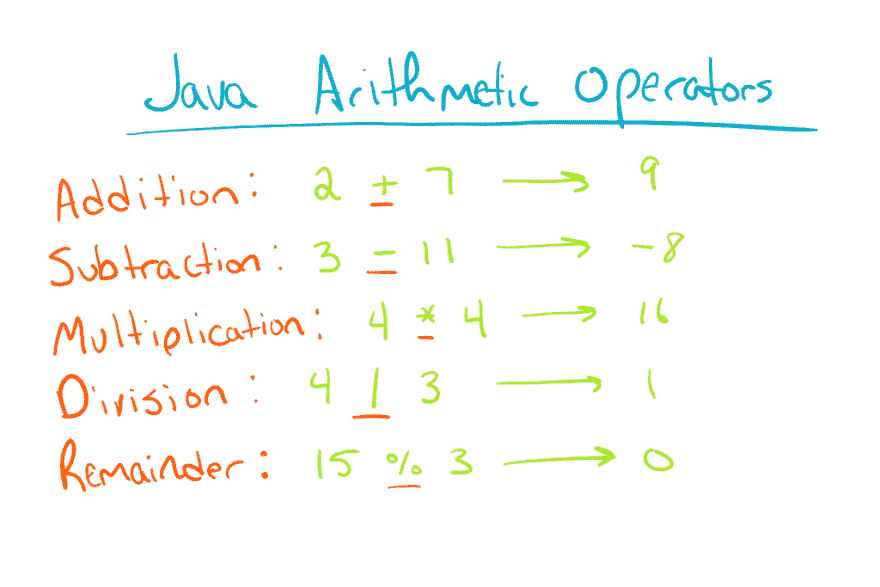 Java Arithmetic Operators
Addition: 2 + 7 → 9
Subtraction: 3 - 11 → -8
Multiplication: 4 * 4 → 16
Division: 4 / 3 → 1
Remainder: 15 % 3 → 0